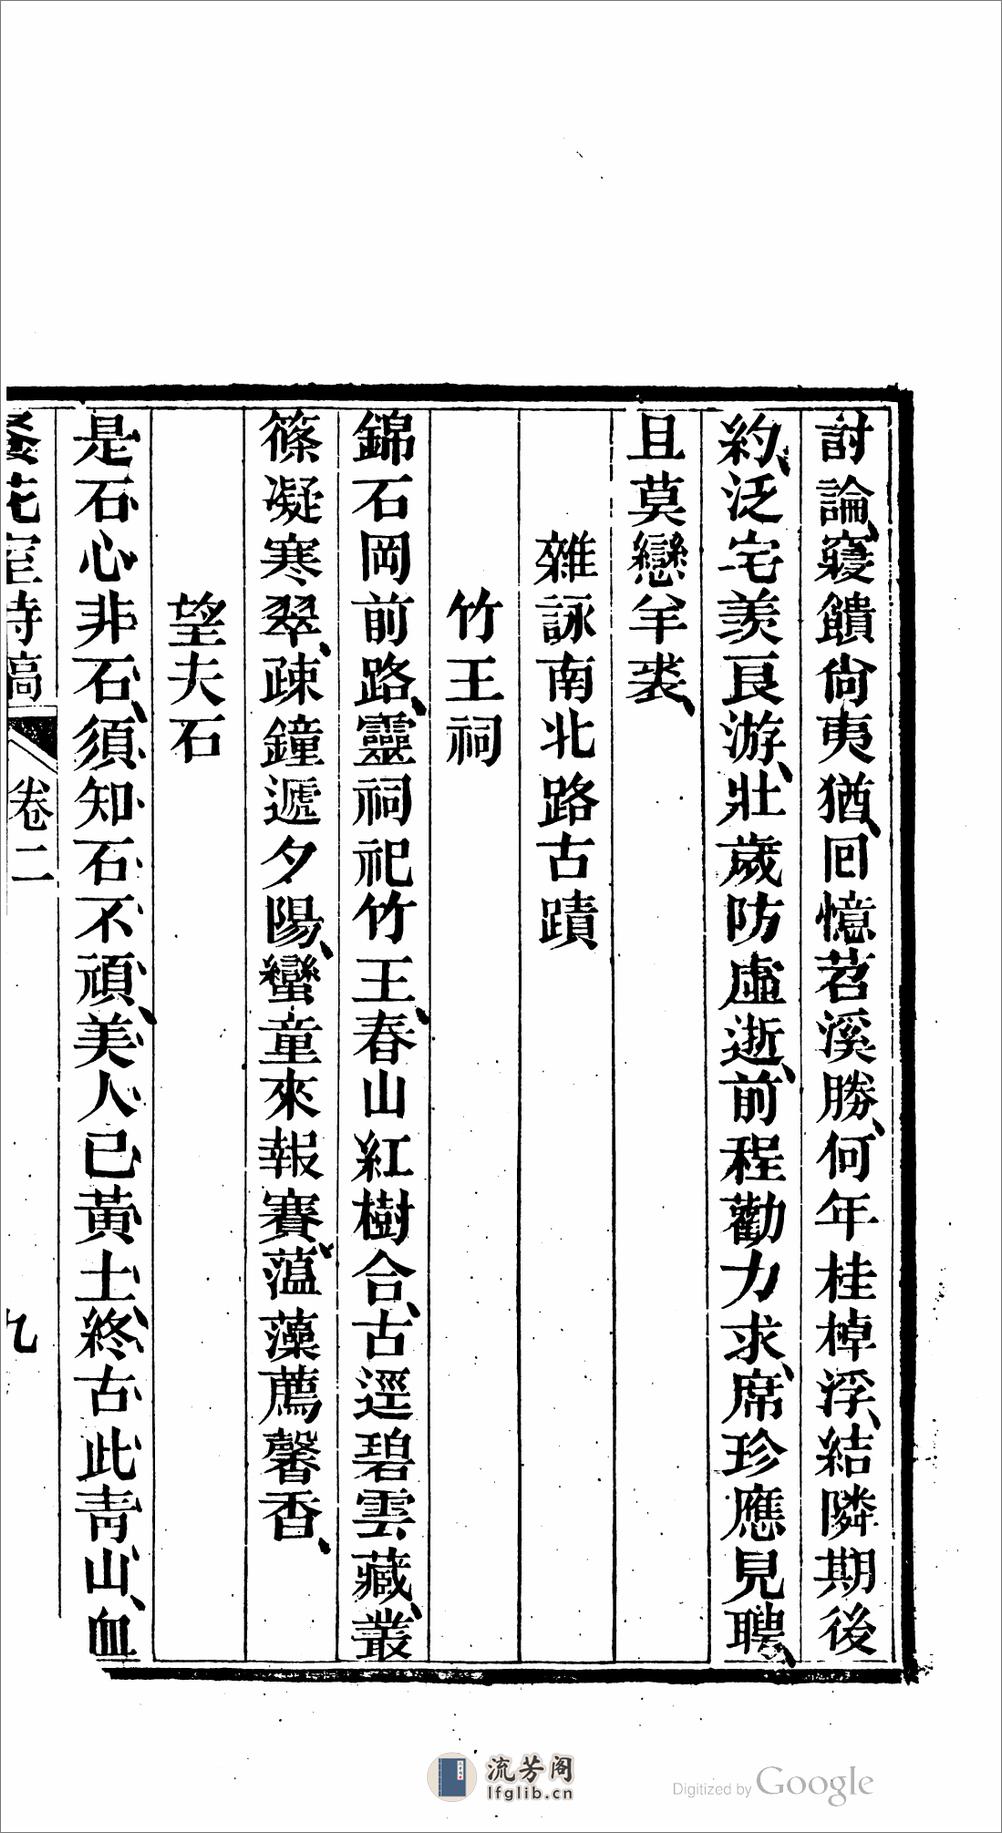 討論、寢饋尙夷猶、囘憶苕溪勝、何年桂棹浮、結隣期後
約、泛宅羨良游、壯歲防虛逝、前程勸力求、席珍應見聘、
且莫戀羊裘、
雜詠南北路古蹟
竹王祠
錦石岡前路、靈祠祀竹王、春山紅樹合、古逕碧雲藏、叢
篠凝寒翠、疎鐘遞夕陽、蠻童來報賽、薀藻薦馨香、
望夫石
是石心非石、須知石不頑、美人已黃土、終古此靑山、血
花室詩稿
卷二
九
流芳阁
lfglib.cn
Digitized by Google